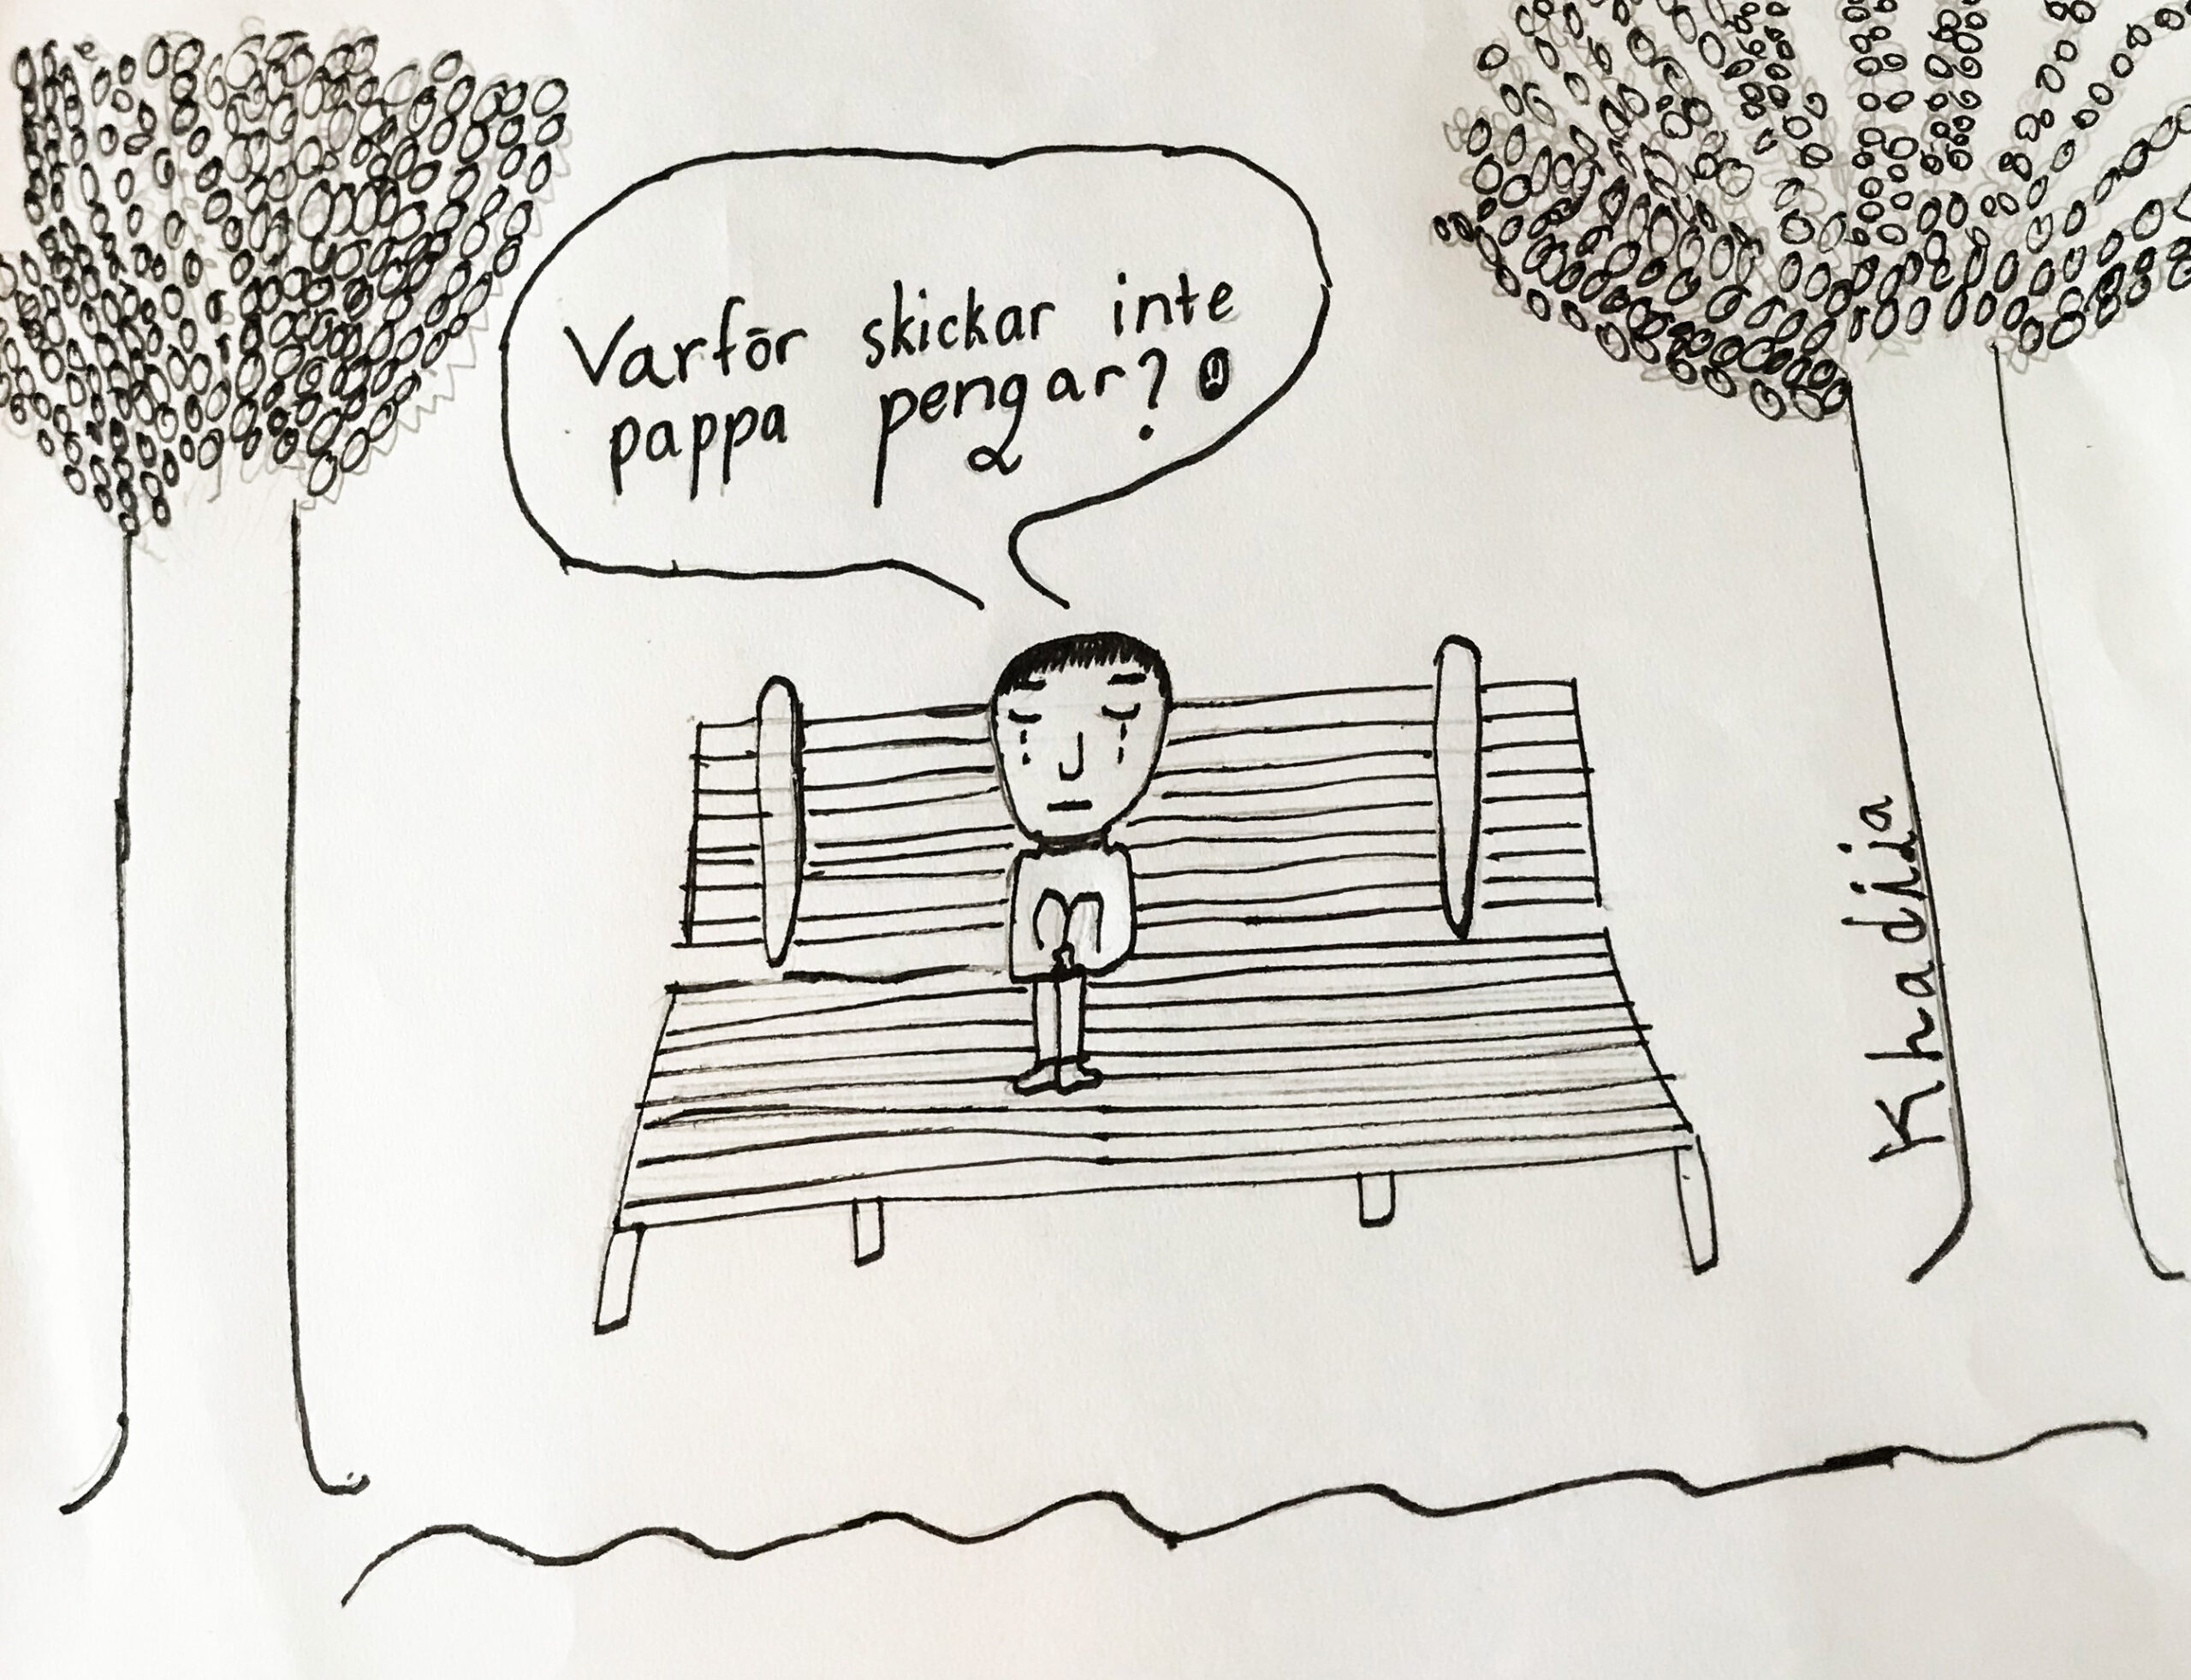 Varför skickar inte
pappa pengar?
Khadija